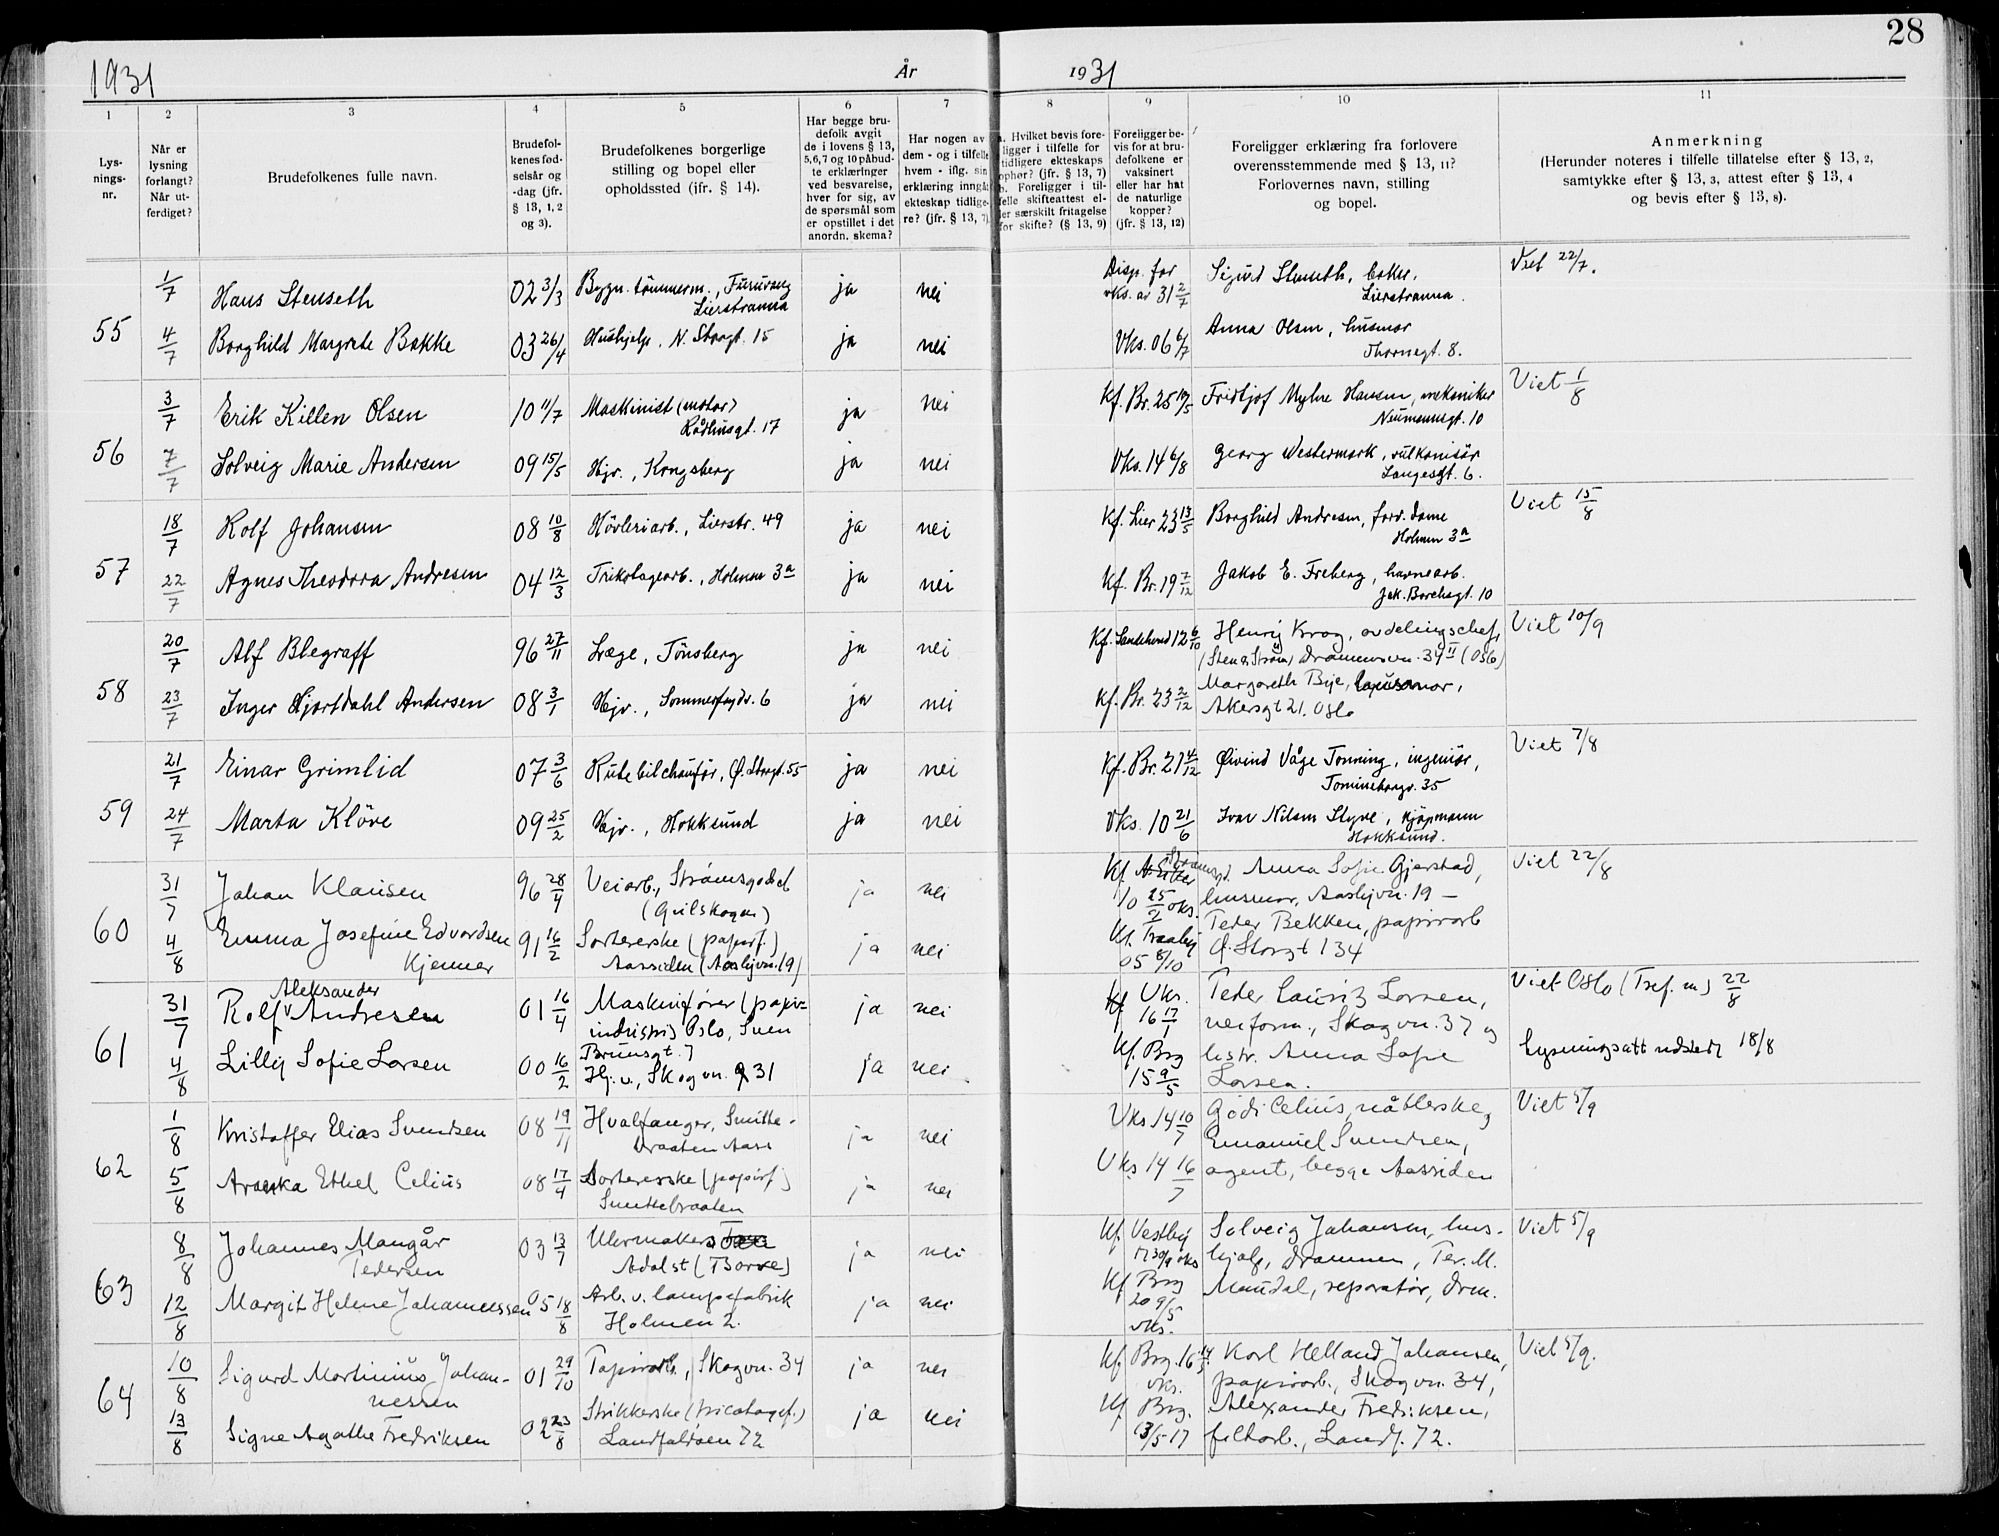 28
1931
År
1931
1
2
3
4
5
6
7
8
9
10
11
Lys-
nings-
nr.
Når er
lysning
forlangt?
Når ut-
ferdiget?
Brudefolkenes fulle navn.
Brudefol-
kenes fød-
selsår og
-dag (jfr.
§ 13, 1, 2
og 3).
Brudefolkenes borgerlige
stilling og bopel eller
opholdssted (jfr. § 14).
Har begge bru-
defolk avgit
de i lovens § 13,
5,6,7 og 10 påbud-
te erklæringer
ved besvarelse,
hver for sig, av
de spørsmål som
er opstillet i det
anordn. skema?
Har nogen av
dem - og i tilfelle
hvem - iflg. sin
erklæring inngåt
ekteskap tidlige-
re? (jfr. § 13, 7)
a. Hvilket bevis fore-
ligger i tilfelle for
tidligere ekteskaps
ophør? (jfr. § 13, 7)
b. Foreligger i til-
felle skifteattest el-
ler særskilt fritagelse
for skifte? (§ 13, 9)
Foreligger be-
vis for at bru-
defolkene er
vaksinert
eller har hat
de naturlige
kopper?
(jfr. § 13, 12)
Foreligger erklæring fra forlovere
overensstemmende med § 13, 11?
Forlovernes navn, stilling
og bopel.
Anmerkning
(Herunder noteres i tilfelle tillatelse efter § 13, 2,
samtykke efter § 13, 3, attest efter § 13, 4
og bevis efter § 13, 8).
55
1/7 Hans Stenseth 02 3/3 Bygn. tömmerm., Furuvang
Lierstranda ja nei Disp. for
vks. av 31 2/7 Sigurd Stenseth, baker,
Lierstranda. Viet 22/7.
4/7 Borghild Margrete Bakke 03 26/4 Hushjelp, N. Storgt. 15 ja nei Vks. 06 6/7 Anna Olsen, husmor
Thornegt. 8.
56
3/7 Erik Killen Olsen 10 11/7 Maskinist (motor)
Rådhusgt. 17 ja nei Kf. Br. 25 10/5 Fridtjof Myhre Hansen, mekaniker
Neumannsgt. 10 Viet 1/8
7/7 Solveig Marie Andersen 09 15/5 Hjv., Kongsberg ja nei Vks. 14 6/8 Georg Westermark, vulkanisör
Langesgt. 6.
57
18/7 Rolf Johansen 08 10/8 Hövleriarb., Lierstr. 49 ja nei Kf. Lier 23 13/5 Borghild Andresen, forr. dame
Holmen 3a Viet 15/8
22/7 Agnes Theodora Andresen 04 12/3 Trikotagearb., Holmen 3a ja nei Kf. Br. 19 7/12 Jakob E. Freberg, havnearb.
Jak. Borchsgt. 10
58
20/7 Alf Blegraff 96 27/11 Læge, Tönsberg ja nei Kf. Sandeherred 12 6/10 Henrij Krog, avdelingschef,
(Sten & Ström) Drammensvn. 34 II (Oslo) Viet 10/9
23/7 Inger Hjortdahl Andersen 08 3/1 Hjv., Sommerfrydv. 6 ja nei Kf. Br. 23 2/12 Margareth Bye, husmor,
Akersgt 21. Oslo
59
21/7 Einar Grimlid 07 3/6 Rutebilchauför, Ø. Storgt. 55 ja nei Kf. Br. 21 4/12 Øivind Våge Tonning, ingeniör,
Tomineborgv. 35 Viet 7/8
24/7 Marta Klöve 09 25/2 Hjv., Hokksund ja nei Vks. 10 21/6 Ivar Nilsen Styve, kjöpmann
Hokksund.
60
31/7 Johan Klausen 96 28/4 Veiarb., Strömsgodset
(Gulskogen) ja nei Kf. Strömsgd.
10 25/2 vks. Anna Sofie Gjerstad,
husmor, Aaslyvn. 19 — Viet 22/8
4/8 Emma Josefine Edvardsen
Kjenner 91 16/2 Sortererske (papirf.)
Aassiden (Aaslyvn. 19) ja nei Kf. Tranby
05 8/10 Peder Bekken, papirarb
Ø. Storgt 134
61
31/7 Aleksander
Rolf Andresen 01 16/4 Maskinfører (papir-
industri) Oslo, Sven
Brunsgt. 7 ja nei Vks.
16 17/1 Peder Lauritz Larsen,
veiform., Skogvn. 37 og Viet Oslo (Tref. m.) 22/8
4/8 Lilly Sofie Larsen 00 16/2 Hj. v., Skogvn. 31 ja nei Kf. Brg
15 9/5 hstr. Anna Sofie
Larsen. Lysningsatt utstedt 18/8
62
1/8 Kristoffer Elias Svendsen 08 19/11 Hvalfanger, Smitte-
braaten Aass ja nei Vks 14 10/7 Gödi Celius, nåtlerske,
Emanuel Svendsen, Viet 5/9
5/8 Ethel Celius 08 17/4 Sortererske (papirf)
Smittebraaten ja nei Vks 14 16/7 agent, begge Aassiden
63
8/8 Johannes Mangår
Pedersen 03 13/7 Uhrmaker
Adalst (Borre) ja nei Kf. Vestby
17 30/9 vks Solveig Johansen, hus-
hjelp, Drammen, Per. M. Viet 5/9
12/8 Margit Helene Johannessen 05 18/8 Arb. v. lampefabrik
Holmen 2. ja nei Kf Brg
20 9/5
vks. Mandal, reparatør, Drm.
64
10/8 Sigurd Martinius Johan-
nessen 01 29/10 Papirarb., Skogvn. 34 ja nei Kf. Brg. 16 14/5
vks. Karl Helland Johansen,
papirarb., Skogvn. 34, Viet 5/9.
13/8 Signe Agathe Fredriksen 02 23/8 Strikkerske (tricotagef.)
Landfaldøen 72 ja nei Kf Brg.
13/5 17 Alexander Fredriksen,
filtarb., Landf. 72.